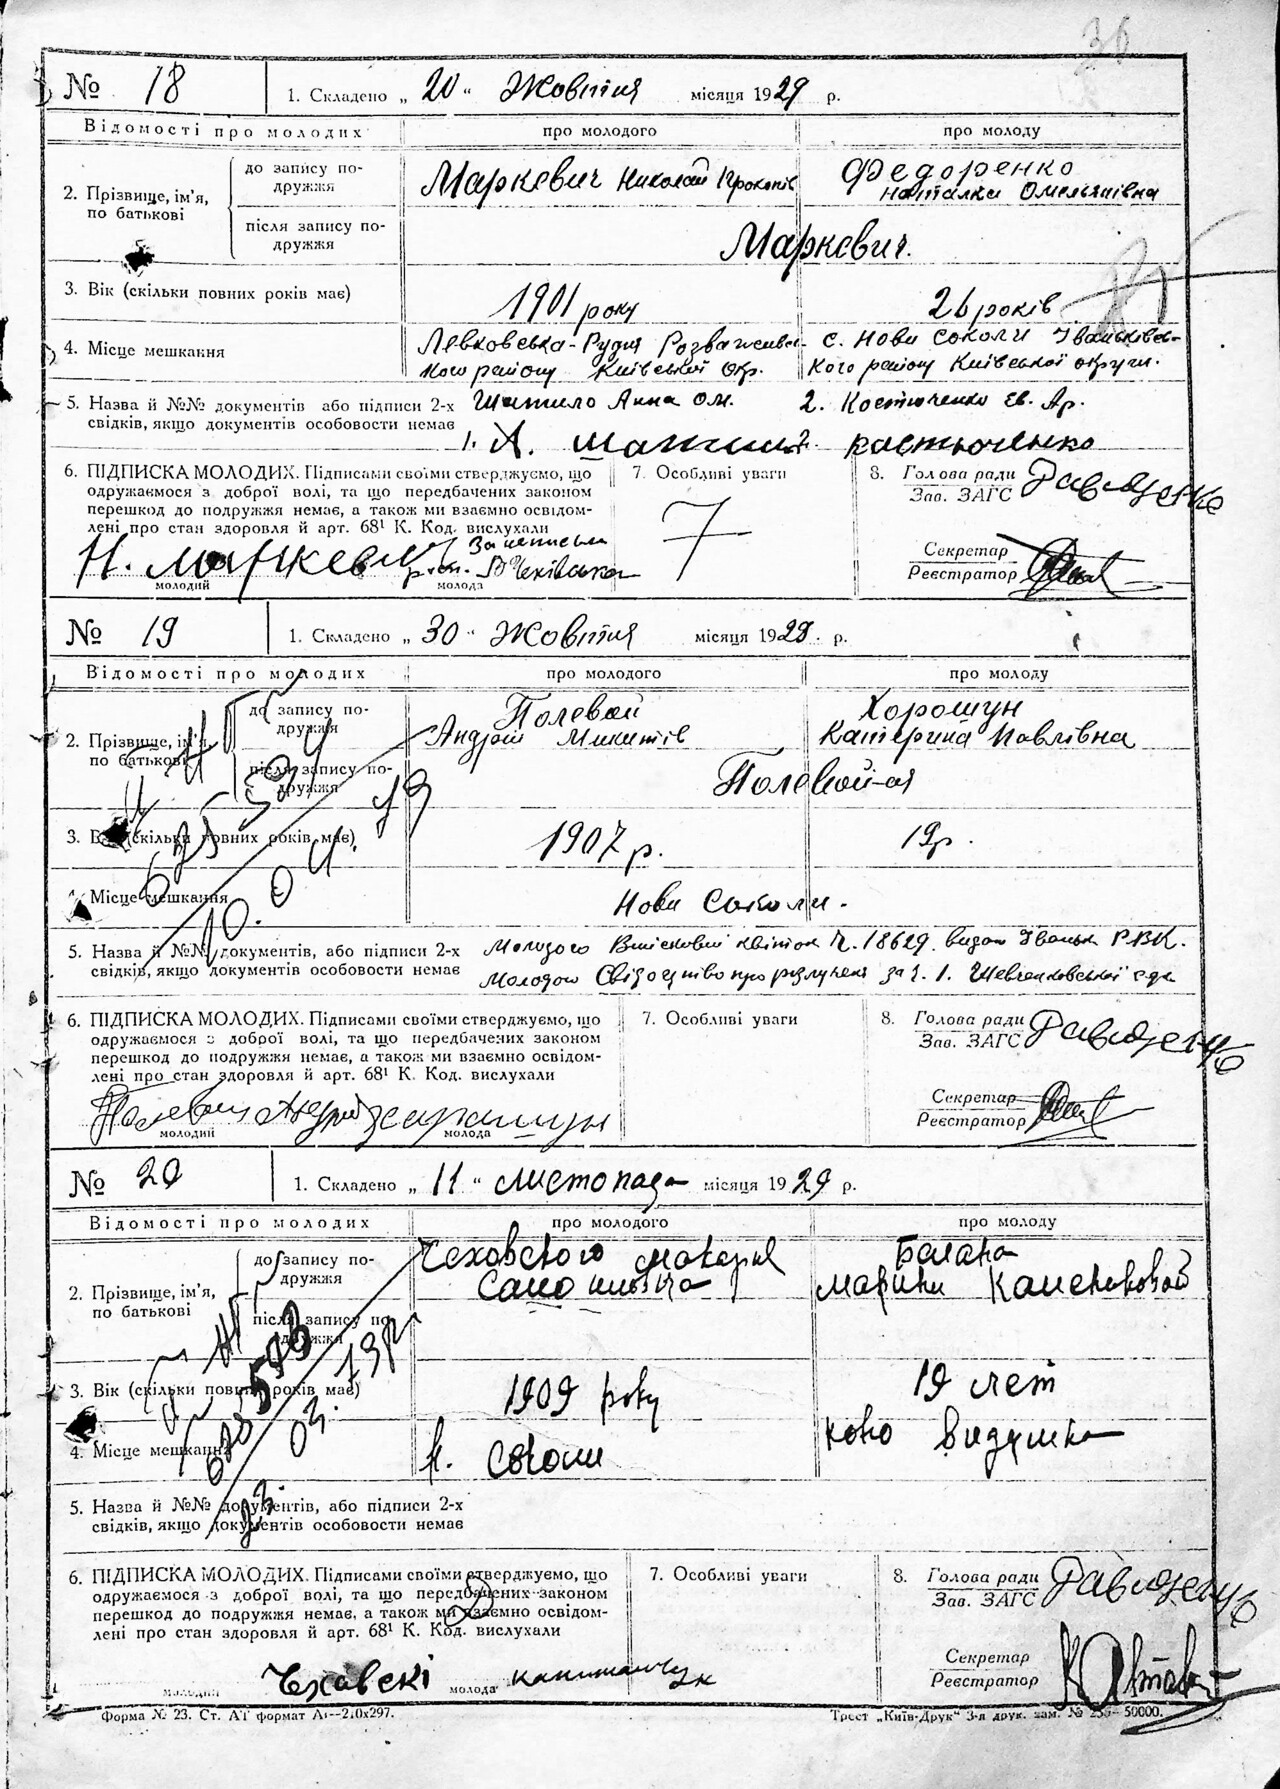 36
№ 18 1. Складено „ 20 “ Жовтня місяця 1929 р.
Відомості про молодих про молодого про молоду
2. Прізвище, ім'я, по батькові
до запису по-дружжя Маркевич Николай Прокопів Федоренко
Наталка Омельянівна
після запису по-дружжя Маркевич.
3. Вік (скільки повних років має) 1901 року 26 років
4. Місце мешкання Левковська-Рудня Розважівсь- с. Нови Соколи Іваньківсь-
кого району Київської окр. кого району Київської округи.
5. Назва й №№ документів або підписи 2-х Шатило Анна Ом. 2. Костюченко Єв. Ар.
свідків, якщо документів особовости немає 1. А. 2. костьюченко
6. ПІДПИСКА МОЛОДИХ. Підписами своїми стверджуємо, що 7. Особливі уваги 8. Голова ради
одружаємося з доброї волі, та що передбачених законом Зав. ЗАГС
перешкод до подружжя немає, а також ми взаємно освідом- 7
лені про стан здоровля й арт. 68¹ К. Код. вислухали Секретар
Н. Маркевич Реєстратор
молодий молода
№ 19 1. Складено „ 30 “ Жовтня місяця 1929. р.
Відомості про молодих про молодого про молоду
2. Прізвище, ім'я, по батькові
до запису по-дружжя Полевой Хорошун
Андрій Микитів Катерина Павлівна
після запису по-дружжя Полевой-ая
3. Вік (скільки повних років має) 1907 р. 19 р.
4. Місце мешкання Нови Соколи.
5. Назва й №№ документів, або підписи 2-х Молодого Військовий квіток Ч. 18629. видан Іваньк. РВК.
свідків, якщо документів особовости немає Молодою Свідоцтво про розлучення за ч. 1. Шевченковської
6. ПІДПИСКА МОЛОДИХ. Підписами своїми стверджуємо, що 7. Особливі уваги 8. Голова ради
одружаємося з доброї волі, та що передбачених законом Зав. ЗАГС
перешкод до подружжя немає, а також ми взаємно освідом-
лені про стан здоровля й арт. 68¹ К. Код. вислухали Секретар
Реєстратор
молодий молода
№ 20 1. Складено „ 11 “ листопада місяця 1929 р.
Відомості про молодих про молодого про молоду
2. Прізвище, ім'я, по батькові
до запису по-дружжя Чеховского Макария
Марини
після запису по-дружжя
3. Вік (скільки повних років має) 1909 року 19 лет
4. Місце мешкання Н. Соколи
5. Назва й №№ документів, або підписи 2-х
свідків, якщо документів особовости немає
6. ПІДПИСКА МОЛОДИХ. Підписами своїми стверджуємо, що 7. Особливі уваги 8. Голова ради
одружаємося з доброї волі, та що передбачених законом Зав. ЗАГС
перешкод до подружжя немає, а також ми взаємно освідом-
лені про стан здоровля й арт. 68¹ К. Код. вислухали Секретар
Чехавскі Реєстратор
молодий молода
Форма № 23. Ст. АГ формат А₄—210х297. Трест „Київ-Друк“ 3-я друк. зам. № 50000.